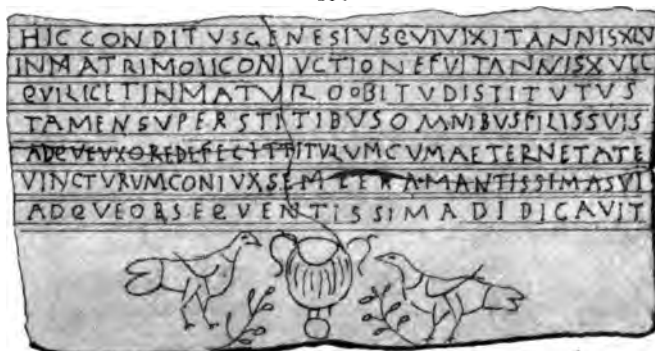 HICCONDITVSGENESIVSQVIVIXITANNISXLV
INMATRIMONICONIVCTIONEFVITANNISXVII
QVILICETINMATVROOBITVDISTITVTVS
TAMENSVPERSTITIBVSOMNIBVSFILISSVIS
ADQVEVXOREDEFECITTITVLVMCVMAETERNETATE
VINCTVRVMCONIVXSEMPERAMANTISSIMASVI
ADQVEOBSEQVENTISSIMADIDICAVIT